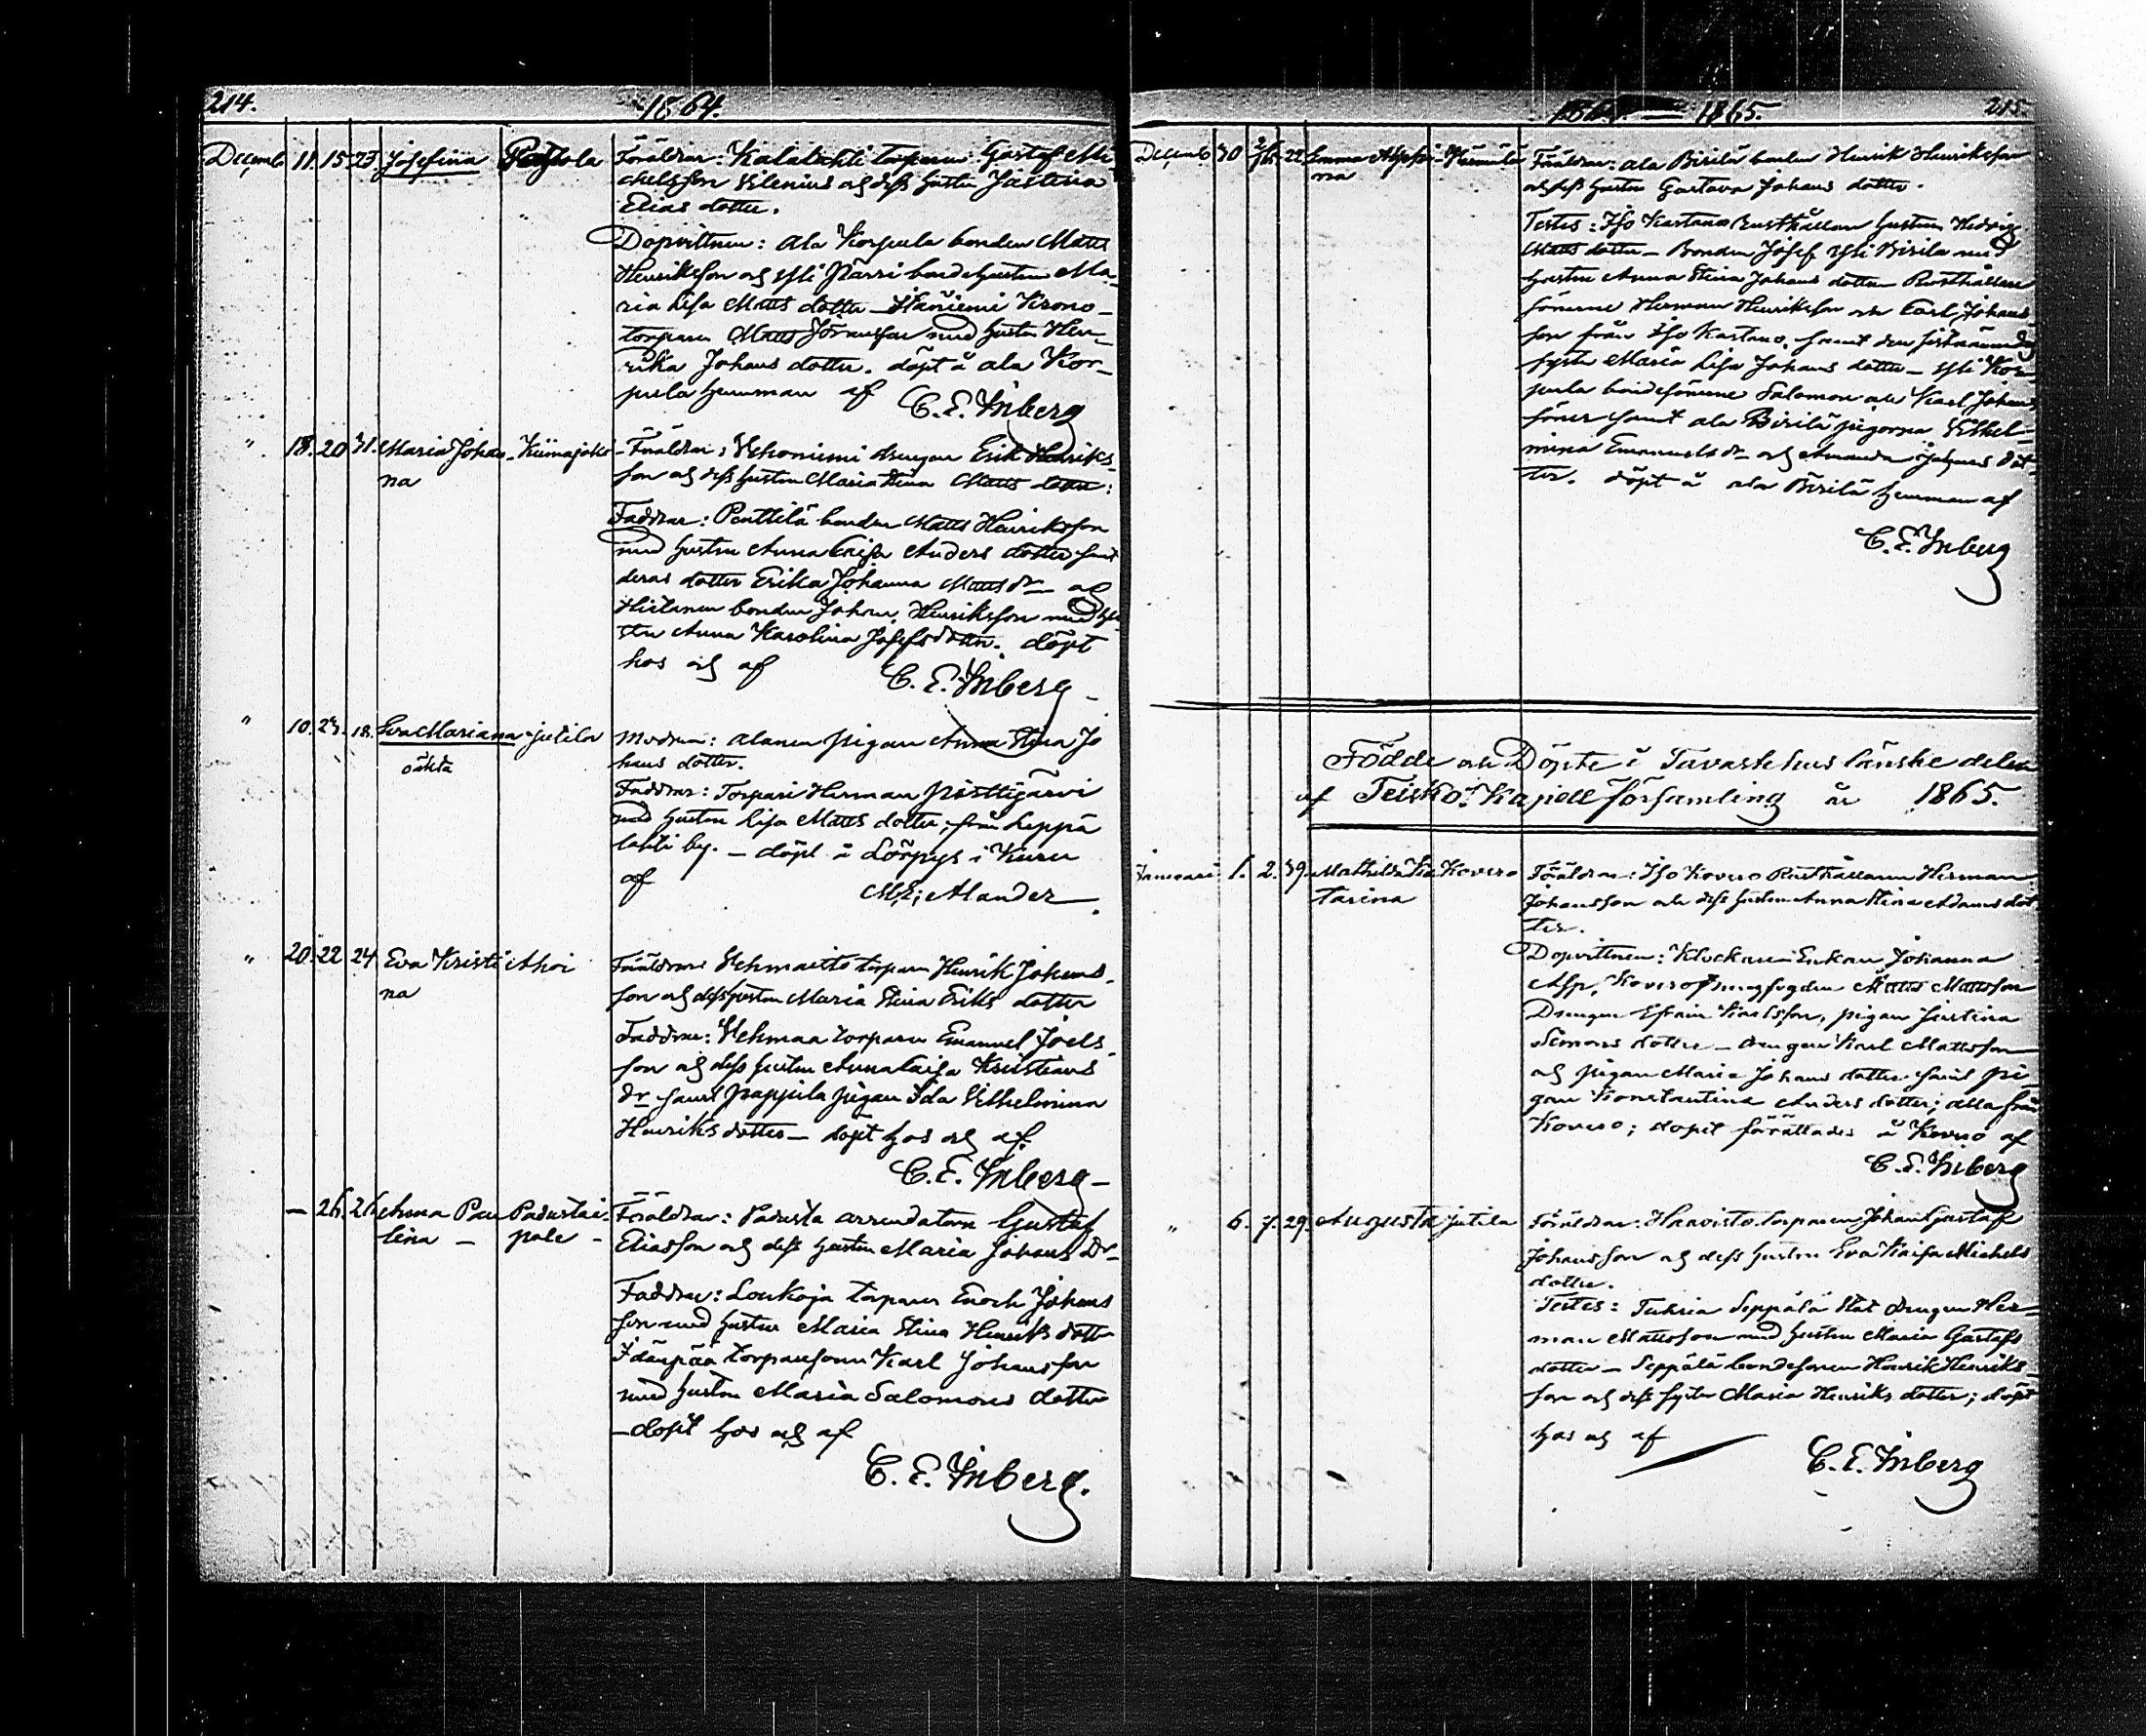 214.
1864.
Decemb 11. 15. 23. Josefina Pohjola Föräldrar: Kalalahti torparen Gustaf Mi-
chelsson Vilenius och dess hustru Justina
Elias dotter.
Dopvittnen: Ala Korpula bonden Matts
Henriksson och Yli Pärri bondehustrun Ma-
ria Lisa Matts dotter - Haniemi Krono-
torparen Matts Jöransson med hustru Hen-
rika Johans dotter. döpt å ala Kor-
pula hemman af C. E. Inberg
" 18. 20 31. Maria Johan- Kiimajoki - Föräldrar: Vehoniemi drengen Erik Henriks-
na son och dess hustru Maria Stina Matts dotter:
Faddrar: Penttilä bonden Matts Henriksson
med hustru Anna Caisa Anders dotter samt
deras dotter Erika Johanna Matts dr - och
Hietanen bonden Johan Henriksson med hu-
stru Anna Karolina Josefs dotter. döpt
hos och af C. E. Inberg -
" 10. 23. 18. Eva Mariana - Jutila Modren: Alanen pigan Anna Stina Jo
oäkta hans dotter.
Faddrar: Torpari Herman Pisttijärvi
med hustru Lisa Matts dotter, från Leppä
lahti by. - döpt å Lörpys i Kuru
af M. E. Alander
" 20. 22 24 Eva Kristi Ahoi Föräldrar: Vehmaitto torparen Henrik Johans-
na son och dess hustru Maria Stina Eriks dotter
Faddrar: Vehmaa torparen Emanuel Joels-
son och dess hustru Anna Caisa Kristians
dr samt Pappila pigan Ida Vilhelmina
Henriks dotter - döpt hos och af.
C. E. Inberg -
— 26. 26 Anna Pau Padustai- Föräldrar: Padusta arrendatorn Gustaf
lina - pale - Eliasson och dess hustru Maria Johans Dr-
Faddrar: Loukoja torparen Enoch Johans
son med hustru Maria Stina Henriks dotter
Idänpää torparesonen Karl Johansson
med hustru Maria Salomons dotter
- döpt hos och af
C. E. Inberg.
1865.
215.
Decemb. 30 22 Emma Alpfi- Föräldrar: Ala Birilä bonden Henrik Henriksson
na och dess hustru Gustava Johans dotter.
Testes: Iso Kartano Rusthållare hustrun Hedvig
Matts dotter - Bonden Josef Yli Birilä med
hustru Anna Stina Johans dotter Rusthållare
sönerne Herman Henriksson och Carl Johans-
son från Iso Kartano, samt den sistnämndes
syster Maria Lisa Johans dotter - Yli Kor-
pula bondesönerne Salomon och Karl Johans
söner samt ala Birilä pigorna Vilhel-
mina Emanuels dr och Amanda Johans dot-
ter. döpt å ala Birilä hemman af
C. E. Inberg
Födde och Döpte i Tavastehus länske delen
af Teisko Kapell församling år 1865.
Januari 1. 2. 39. Mathilda Ka Kovero Föräldrar: Iso Kovero Rusthållaren Herman
tarina Johansson och dess hustru Anna Stina Adams dot
ter.
Dopvittnen: Klockare Enkan Johanna
Asp, Kovero Matts Mattsson
Drengen Efraim Karlsson, pigan Justina
Simons dotter - drengen Karl Mattsson
och pigan Maria Johans dotter samt pi-
gan Konstantina Anders dotter; alla från
Kovero; dopet förättades å Kovero af
C. E. Inberg
" 6. 7. 29. Augusta Jutila Föräldrar: Haavisto torparen Johan Gustaf
Johansson och dess hustru Eva Kaisa Michels
dotter.
Testes: Tuhria Seppälä Stat drengen Her-
man Mattsson med hustru Maria Gustafs
dotter - Seppälä bondesonen Henrik Henriks-
son och dess syster Maria Henriks dotter; döpt
hos och af C. E. Inberg